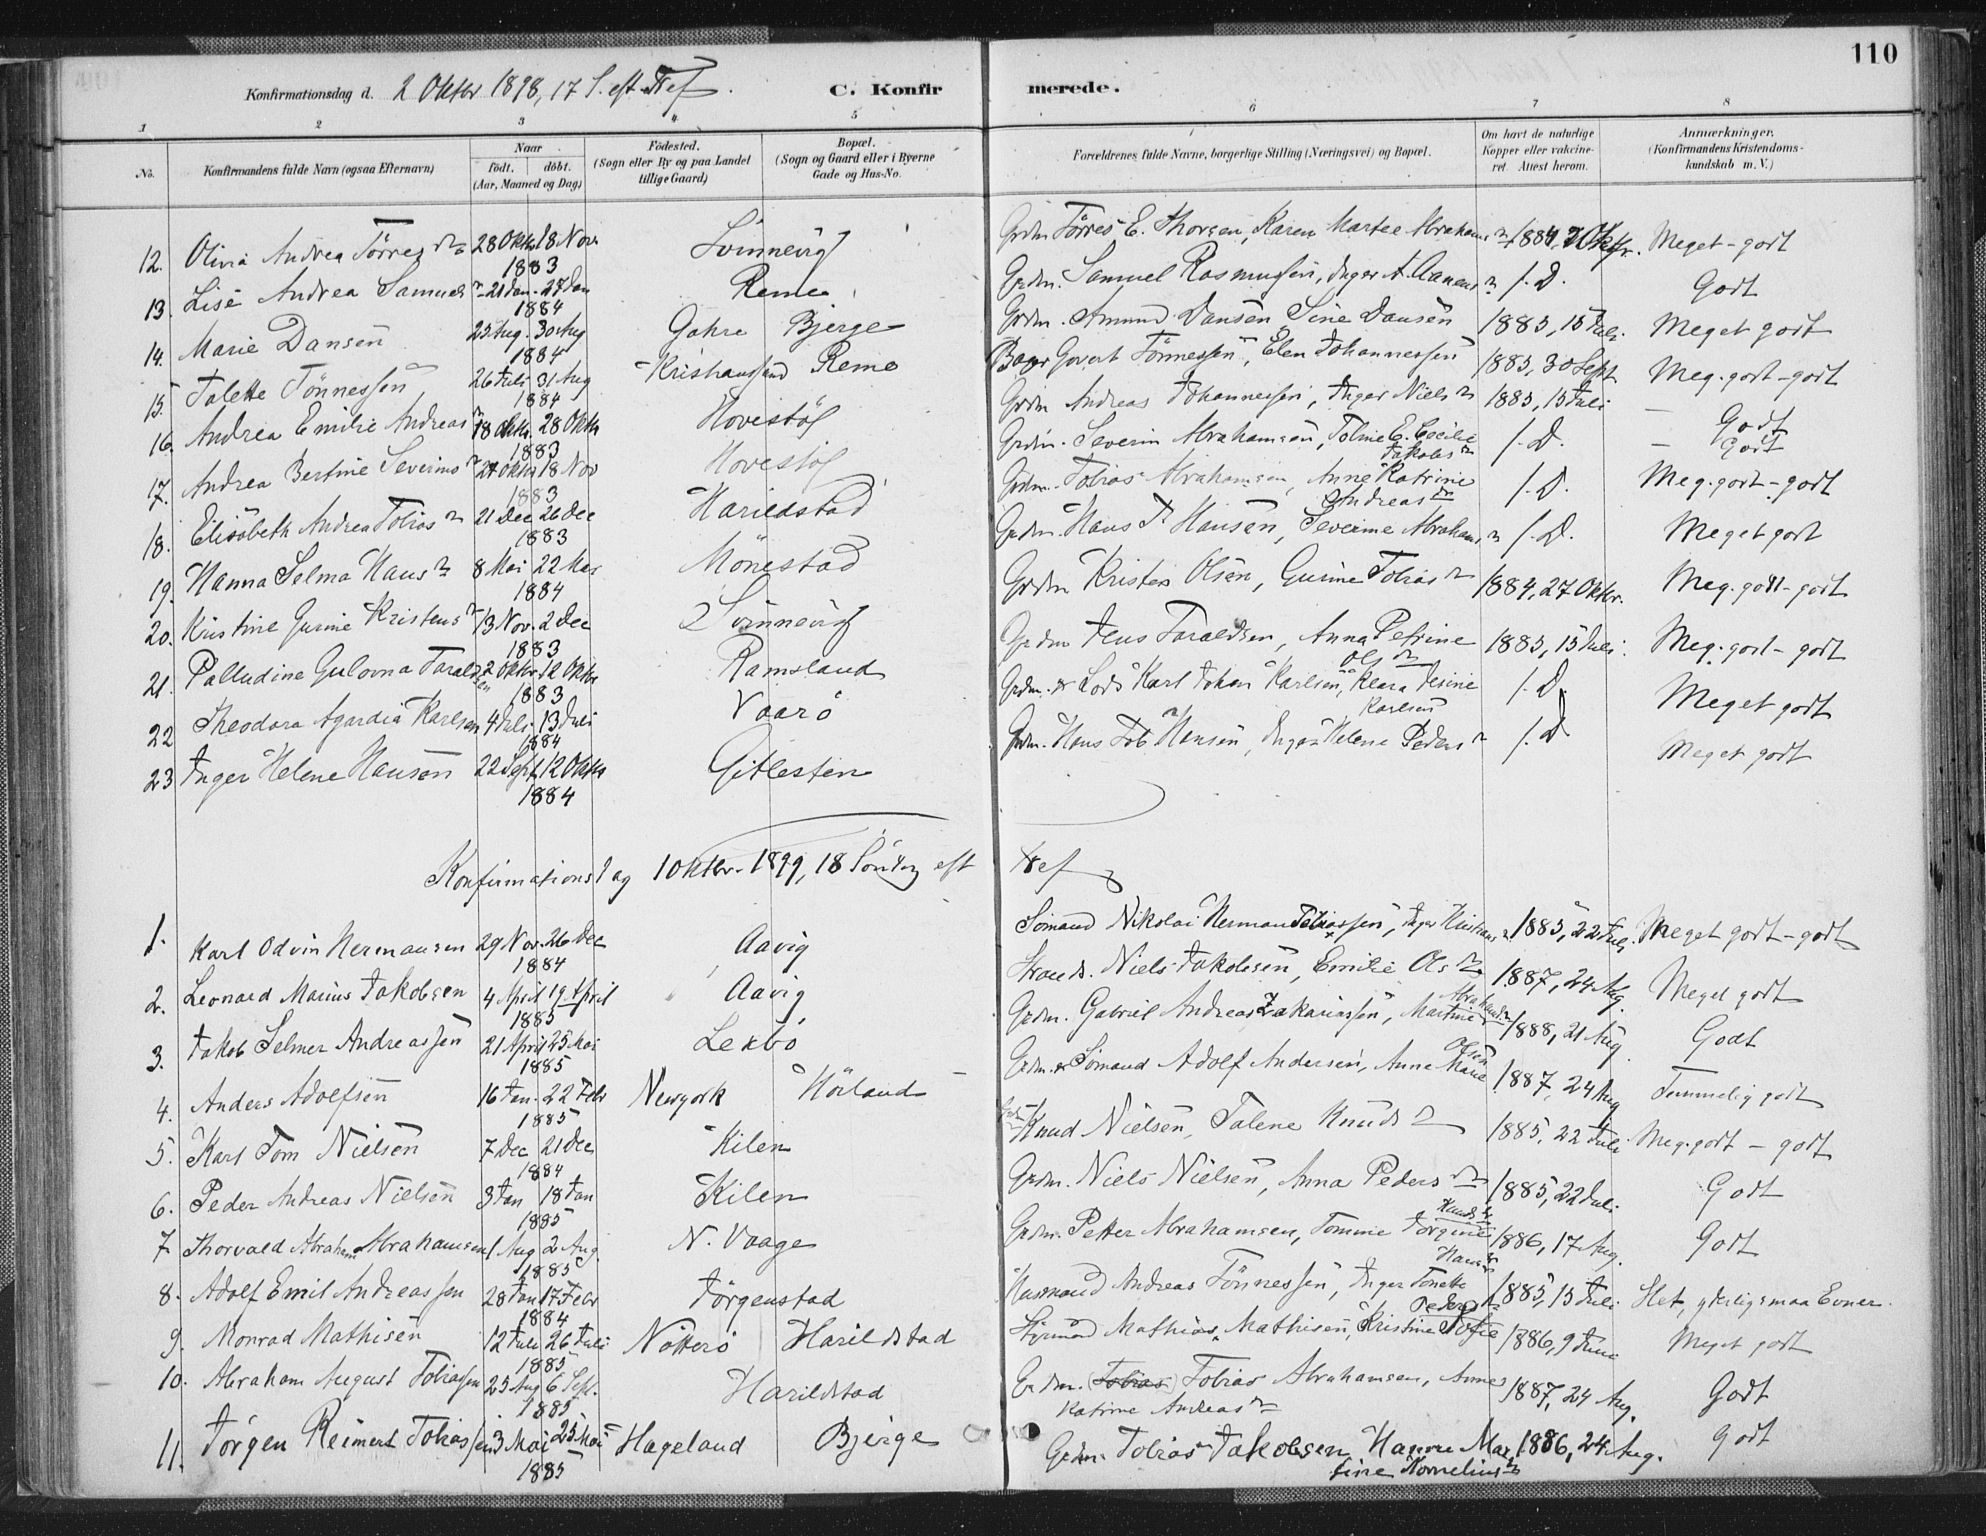 110
Konfirmationsdag d. 2 Oktbr 1898, 17 S. eft Tref. C. Konfirmerede.
1 2 3 4 5 6 7 8
No. Konfirmandens fulde Navn (ogsaa Efternavn) Naar født. døbt. (Aar, Maaned og Dag) Fødested. (Sogn eller By og paa Landet tillige Gaard) Bopæl. (Sogn og Gaard eller i Byerne Gade og Hus-No. Forældrenes fulde Navne, borgerlige Stilling (Næringsvei) og Bopæl. Om havt de naturlige Kopper eller vakcineret. Attest herom. Anmærkninger. (Konfirmandens Kristendomskundskab m. V.)
12. Olivia Andrea Tørresdr 28 Oktbr 18 Novr 1883 Svinnevig Grdm Tørres E. Thorsen, Karen Martee Abrahamsdr 1884, Oktbr. Meget-godt
13. Lise Andrea Samuelsdr 21 Jan. 27 Jan 1884 Reme Grdm. Samuel Rasmussen, Inger A. Aanensdr s. D. Godt
14. Marie Dansen 25 Aug. 30 Aug 1884 Gahre Bjerge Grdm. Amund Dansen Sine Dansen 1885, 15 Juli. Meget godt
15. Talette Tönnessen 26 Juli 31 Aug 1884 Kristianssand Reme Govert Tönnessen, Elen Johannessen 1885, 30 Sept Meg. godt-godt
16. Andrea Emilie Andreasdr 18 Oktbr. 28 Oktbr 1883 Hovestøl Grdm Andreas Johannessen, Inger Nielsdr 1885, 15 Juli Godt
17. Andrea Bertine Severinsdr 27 Oktbr 18 Nov 1883 Hovestøl Grdm. Severin Abrahamsen, Toline E. Cecilie Jakobsdr s. D. Godt
18. Elisabeth Andrea Tobiasdr 21 Dec 26 Dec 1883 Harildstad Grdm. Tobias Abrahamsen, Anne Katrine Andreasdr s. D. Meg. godt-godt
19. Hanna Selma Hansdr 8 Mai 22 Mai 1884 Mönestad Grdm. Hans T. Hansen, Severine Abrahamsdr s. D. Meget godt
20. Kristine Gurine Kristensdr 13 Nov. 2 Dec 1883 Svinnevig Grdm Kristen Olsen, Gurine Tobiasdr 1884, 27 Oktbr. Meg. godt-godt
21. Palludine Gulovna Taraldsen 2 Oktbr. 12 Oktbr 1883 Ramsland Grdm Jens Taraldsen, Anna Petrine Olsdr 1885, 15 Juli. Meg. godt-godt
22 Theodora Agardia Karlsen 4 Juli 13 Juli 1884 Vaarö Grdm. & Lods Karl Johan Karlsen, Klara Jesine Karlsen s. D. Meget godt
23 Inger Helene Hansen 22 Sept 12 Oktbr 1884 Gitlestin Grdm. Hans Tob. Hansen, Inger Helene Pedersdr s. D. Meget godt
Konfirmationsdag 1 Oktbr. 1899, 18 Söndag eft Tref
1. Karl Odvin Hermansen 29 Nov. 26 Dec 1884 Aavig Sömand Nikolai Herman Tobiassen, Inger Kristensdr 1885, 22 Juli. Meget godt-godt
2. Leonard Marius Jakobsen 4 April 19 April 1885 Aavig Strands. Niels Jakobsen, Emilie Olsdr 1887, 24 Aug. Meget godt
3. Jakob Selmer Andreassen 21 April 25 Mai 1885 Lexbö Grdm. Gabriel Andreas Zakariassen, Martine Abrahamsdr 1888, 21 Aug. Godt
4. Anders Adolfsen 16 Jan. 22 Febr 1885 Newyork Hörland Grdm. & Sömand Adolf Andersen, Anne Marie Olsen 1887, 24 Aug Temmelig godt
5. Karl Tom Nielsen 7 Dec 21 Dec 1884 Kilen Knud Nielsen, Talene Knudsdr 1885, 22 Juli Meg. godt-godt
6. Peder Andreas Nielsen 3 Jan 18 Jan 1885 Kilen Grdm. Niels Nielsen, Anna Pedersdr 1885, 22 Juli. Godt
7 Thorvald Abraham Abrahamsen 1 Aug 2 Aug. 1885 N. Vaage Grdm. Petter Abrahamsen, Tomine Jörgine Knudsdr 1886, 17 Aug. Godt
8. Adolf Emil Andreassen 28 Jan 17 Febr 1884 Jörgenstad Husmand Andreas Tönnessen, Inger Tonette Hansdr 1885, 15 Juli Slet, yderlig smaa Evner.
9. Monrad Mathisen 12 Juli 26 Juli 1885 Nötterö Harildstad Styrmand Mathias Mathisen, Kristine Sofie Pedersdr 1886, 9 Juni Meget godt
10. Abraham August Tobiassen 25 Aug 6 Sept. 1885 Harildstad Grdm. (Tobias) Tobias Abrahamsen, Anne Katrine Andreasdr 1887, 24 Aug. Godt
11. Jörgen Reimert Tobiassen 3 Mai 25 Mai 1885 Hægeland Bjerge Grdm. Tobias Jakobsen Hanne Martine Korneliusdr 1886, 24 Aug. Godt